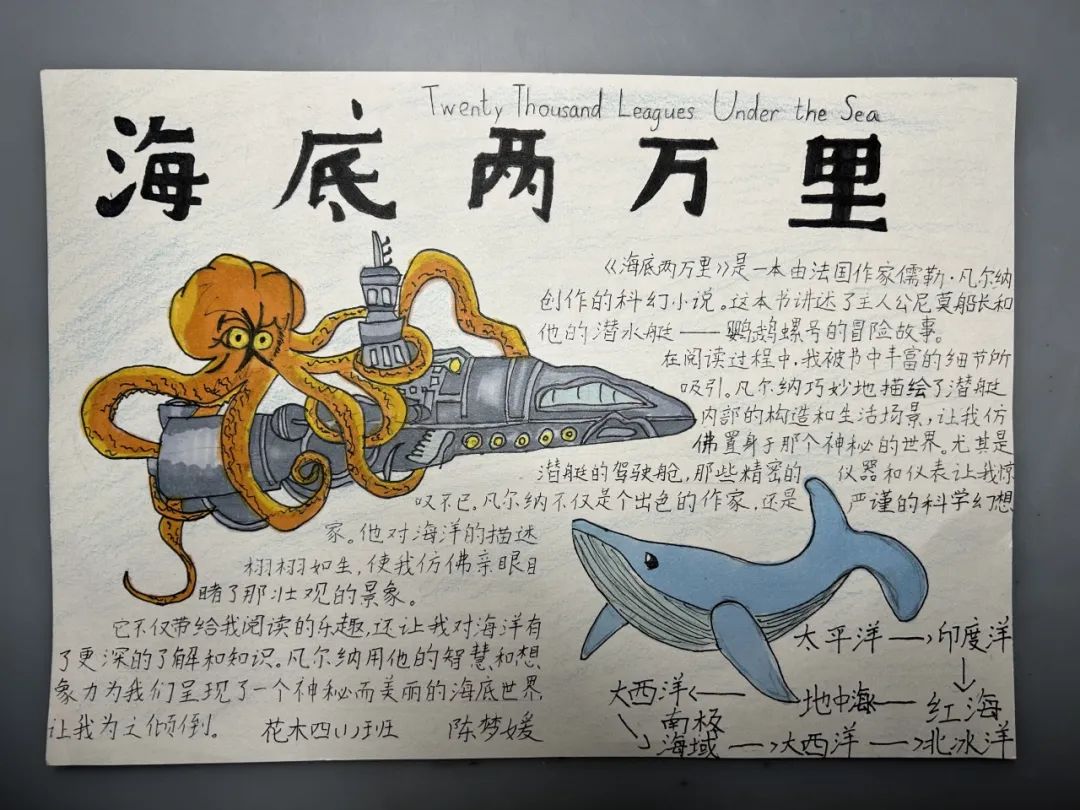 Twenty Thousand Leagues Under the Sea
海底两万里
《海底两万里》是一本由法国作家儒勒·凡尔纳
创作的科幻小说。这本书讲述了主人公尼莫船长和
他的潜水艇——鹦鹉螺号的冒险故事。
在阅读过程中,我被书中丰富的细节所
吸引。凡尔纳巧妙地描绘了潜艇
内部的构造和生活场景,让我仿
佛置身于那个神秘的世界。尤其是
潜艇的驾驶舱,那些精密的仪器和仪表让我惊
叹不已。凡尔纳不仅是个出色的作家,还是严谨的科学幻想
家。他对海洋的描述
栩栩如生,使我仿佛亲眼目
睹了那壮观的景象。
它不仅带给我阅读的乐趣,还让我对海洋有
了更深的了解和知识。凡尔纳用他的智慧和想
象力为我们呈现了一个神秘而美丽的海底世界
让我为之倾倒。 花木四(1)班 陈梦媛
太平洋→印度洋
↓
大西洋←地中海←红海
↘南极
海域→大西洋→北冰洋